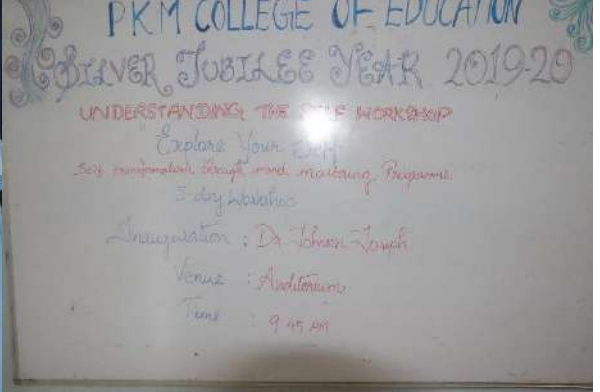 PKM COLLEGE OF EDUCATION
SILVER JUBILEE YEAR 2019-20
UNDERSTANDING THE SELF WORKSHOP
Explore Your Self
Self transformation through mind mastering Programme
5 day Workshop
Inauguration : Dr. Johnson Joseph
Venue : Auditorium
Time : 9.45 AM